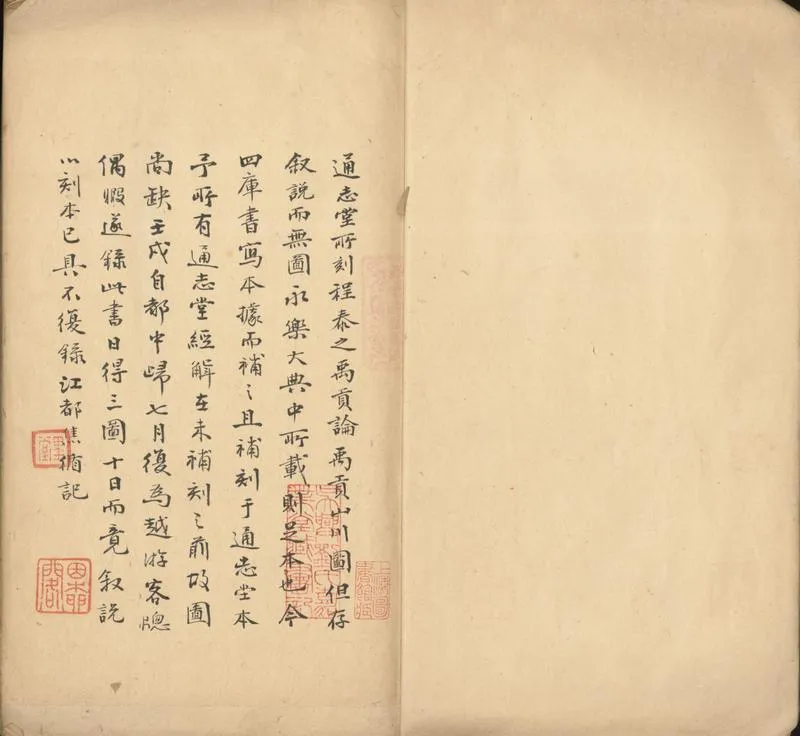 通志堂所刻程泰之禹貢論禹貢山川圖但存
叙說而無圖永樂大典中所載則足本也今
四庫書寫本據而補之且補刻于通志堂本
予所有通志堂經解在未補刻之前故圖
尚缺壬戌自都中歸七月復為越游客牕
偶暇遂錄此書日得三圖十日而竟叙說
以刻本已具不復錄江都焦循記